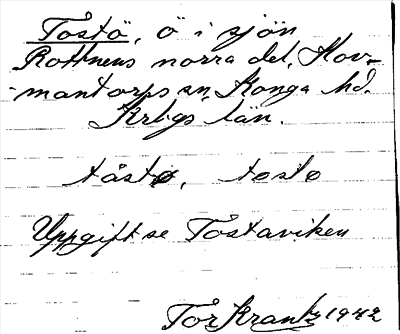 Tostö, ö i sjön
Rottnens norra del, Hov-
mantorps sn, Konga hd.
Krbgs län.
tåstø, tostø
Uppgift se Tostaviken
Tor Krantz 1942